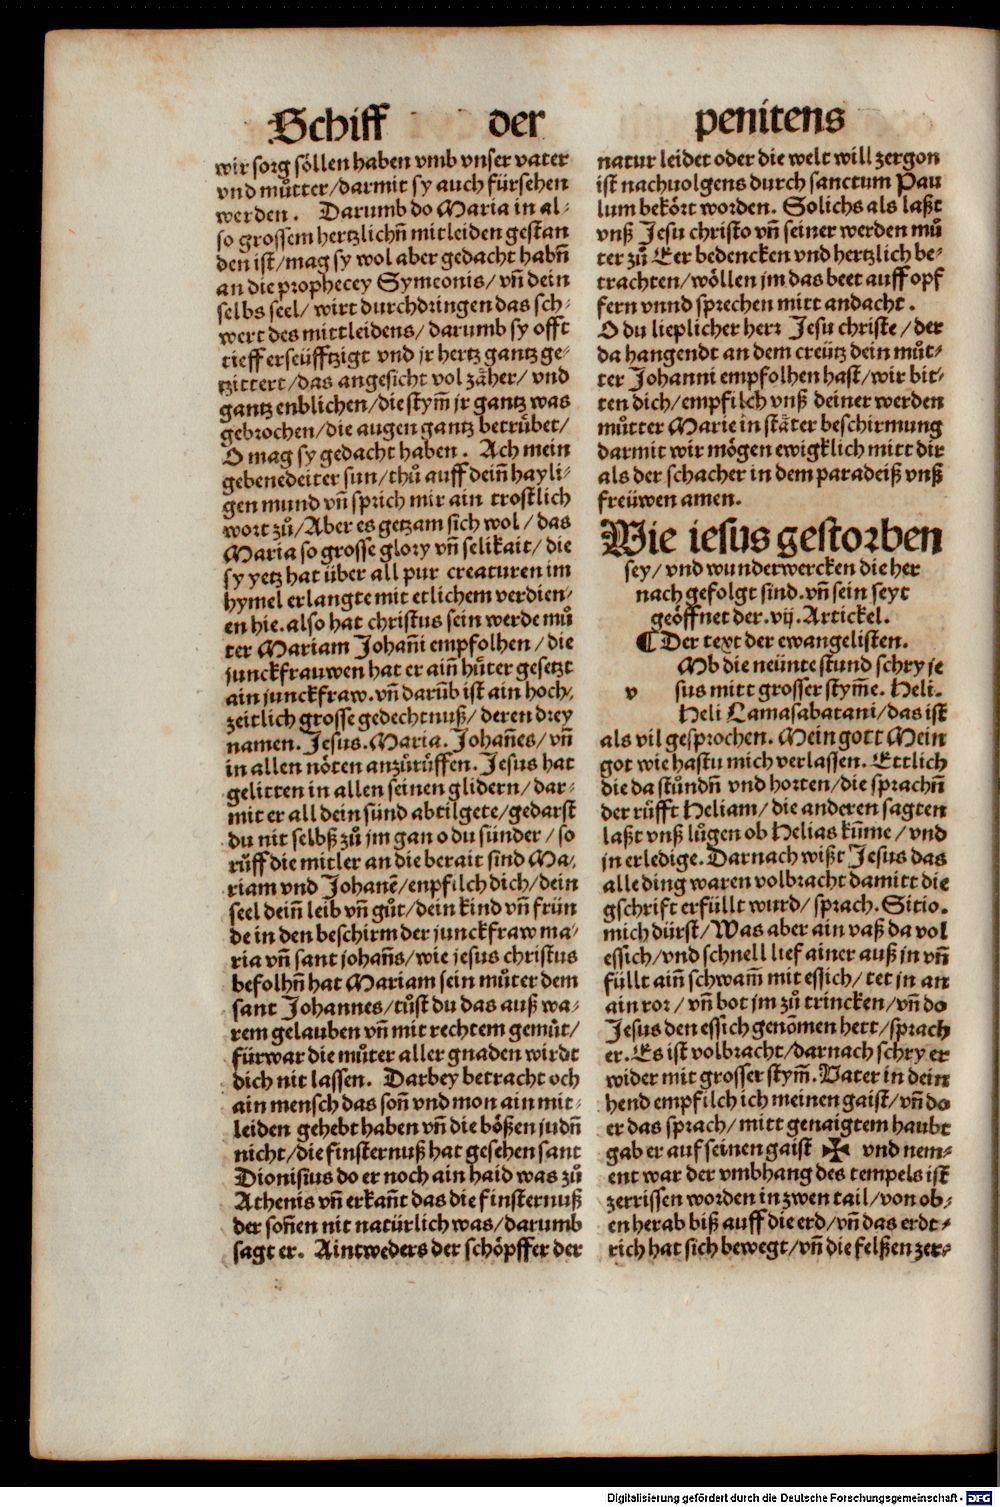 Schiff der penitens
wir sorg söllen haben vmb vnser vater
vnd můtter/darmit sy auch fürsehen
werden. Darumb do Maria in al-
so grossem hertzlichñ mitleiden gestan
den ist/mag sy wol aber gedacht habñ
an die prophecey Symeonis/vñ dein
selbs seel/wirt durchdringen das sch-
wert des mittleidens/darumb sy offt
tieff erseüfftzigt vnd jr hertz gantz ge-
tzittert/das angesicht vol zäher/vnd
gantz enblichen/die stym̄ jr gantz was
gebrochen/die augen gantz betrůbet/
O mag sy gedacht haben. Ach mein
gebenedeiter sun/thů auff deiñ hayli-
gen mund vñ sprich mir ain trostlich
wort zů/Aber es getzam sich wol/das
Maria so grosse glory vñ selikait/die
sy yetz hat über all pur creaturen im
hymel erlangte mit etlichem verdien-
en hie.also hat christus sein werde mů
ter Mariam Johañi empfolhen/die
junckfrauwen hat er aiñ hůter gesetzt
ain junckfraw.vñ darūb ist ain hoch-
zeitlich grosse gedechtnuß/deren drey
namen.Jesus.Maria.Johañes/vñ
in allen nöten anzůrůffen.Jesus hat
gelitten in allen seinen glidern/dar-
mit er all dein sünd abtilgete/gedarst
du nit selbß zů jm gan o du sünder/so
růff die mitler an die berait sind Ma-
riam vnd Johanē/enpfilch dich/dein
seel deiñ leib vñ gůt/dein kind vñ frün
de in den beschirm der junckfraw ma-
ria vñ sant johañs/wie jesus christus
befolhñ hat Mariam sein můter dem
sant Johannes/tůst du das auß wa-
rem gelauben vñ mit rechtem gemůt/
fürwar die můter aller gnaden wirdt
dich nit lassen. Darbey betracht och
ain mensch das soñ vnd mon ain mit-
leiden gehebt haben vñ die bößen judñ
nicht/die finsternuß hat gesehen sant
Dionisius do er noch ain haid was zů
Athenis vñ erkañt das die finsternuß
der soñen nit natürlich was/darumb
sagt er. Aintweders der schöpffer der
natur leidet oder die welt will zergon
ist nachuolgens durch sanctum Pau
lum bekört worden. Solichs als laßt
vnß Jesu christo vñ seiner werden mů
ter zů Eer bedencken vnd hertzlich be-
trachten/wöllen jm das beet auff opf
fern vnnd sprechen mitt andacht.
O du lieplicher herr Jesu christe/der
da hangendt an dem creütz dein můt-
ter Johanni empfolhen hast/wir bit-
ten dich/empfilch vnß deiner werden
můtter Marie in stäter beschirmung
darmit wir mögen ewigklich mitt dir
als der schacher in dem paradeiß vnß
freüwen amen.
Wie iesus gestorben
sey/vnd wunderwercken die her
nach gefolgt sind.vñ sein seyt
geöffnet der.vij.Artickel.
¶Der text der ewangelisten.
Mb die neünte stund schry je
v sus mitt grosser stym̄e. Heli.
Heli Lamasabatani/das ist
als vil gesprochen. Mein gott Mein
got wie hastu mich verlassen. Ettlich
die da stůndñ vnd horten/die sprachñ
der růfft Heliam/die anderen sagten
laßt vnß lůgen ob Helias kūme/vnd
jn erledige. Darnach wißt Jesus das
alle ding waren volbracht damitt die
gschrift erfüllt wurd/sprach.Sitio.
mich dürst/Was aber ain vaß da vol
essich/vnd schnell lief ainer auß jn vñ
füllt aiñ schwam̄ mit essich/tet jn an
ain ror/vñ bot jm zů trincken/vñ do
Jesus den essich genōmen hett/sprach
er.Es ist volbracht/darnach schry er
wider mit grosser stym̄.Vater in dein
hend empfilch ich meinen gaist/vñ do
er das sprach/mitt genaigtem haubt
gab er auf seinen gaist ✠ vnd nem-
ent war der vmbhang des tempels ist
zerrissen worden in zwen tail/von ob-
en herab biß auff die erd/vñ das erdt-
rich hat sich bewegt/vñ die felßen zer-
Digitalisierung gefördert durch die Deutsche Forschungsgemeinschaft - DFG